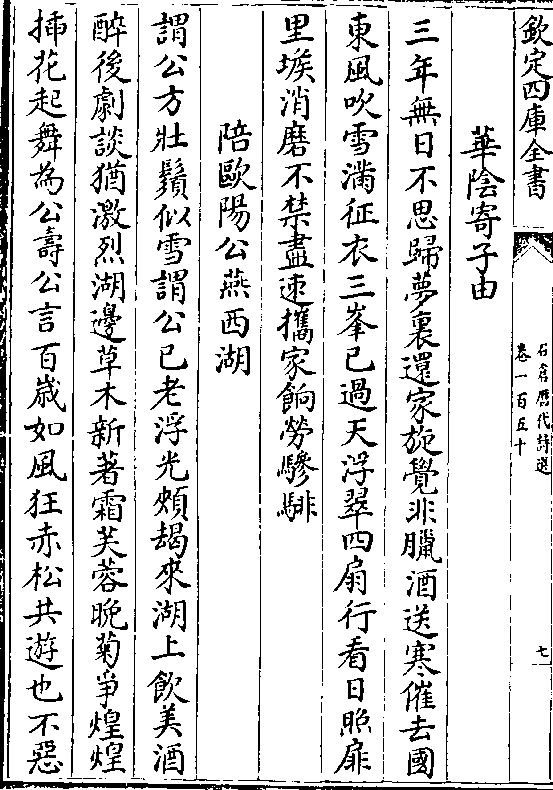 欽定四庫全書
石倉歷代詩選
卷一百五十
七
華陰寄子由
三年無日不思歸夢裏還家旋覺非臘酒送寒催去國
東風吹雪滿征衣三峯已過天浮翠四扇行看日照扉
里堠消磨不禁盡速攜家餉勞驂騑
陪歐陽公燕西湖
謂公方壯鬚似雪謂公已老浮光頰朅來湖上飲美酒
醉後劇談猶激烈湖邊草木新著霜芙蓉晚菊爭煌煌
揷花起舞為公壽公言百歲如風狂赤松共遊也不惡